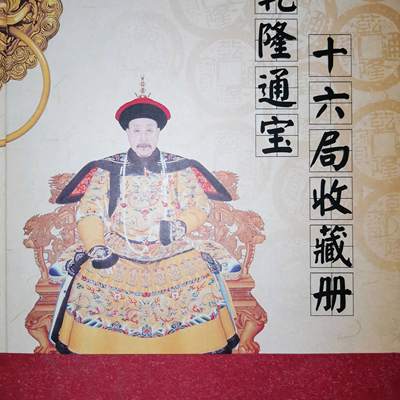 乾隆通宝
十六局收藏册